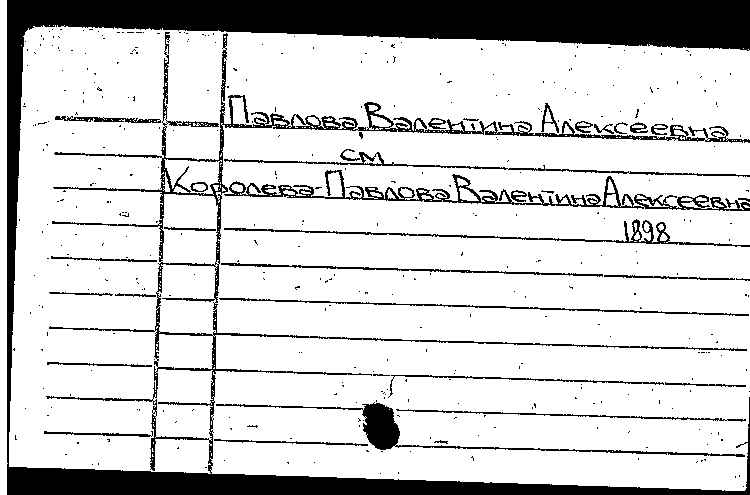 Павлова, Валентина Алексеевна
см.
Королева-Павлова Валентина Алексеевна
1898